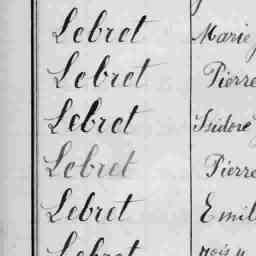 Lebret Marie
Lebret Pierre
Lebret Isidore
Lebret Pierre
Lebret Emil
Lebret